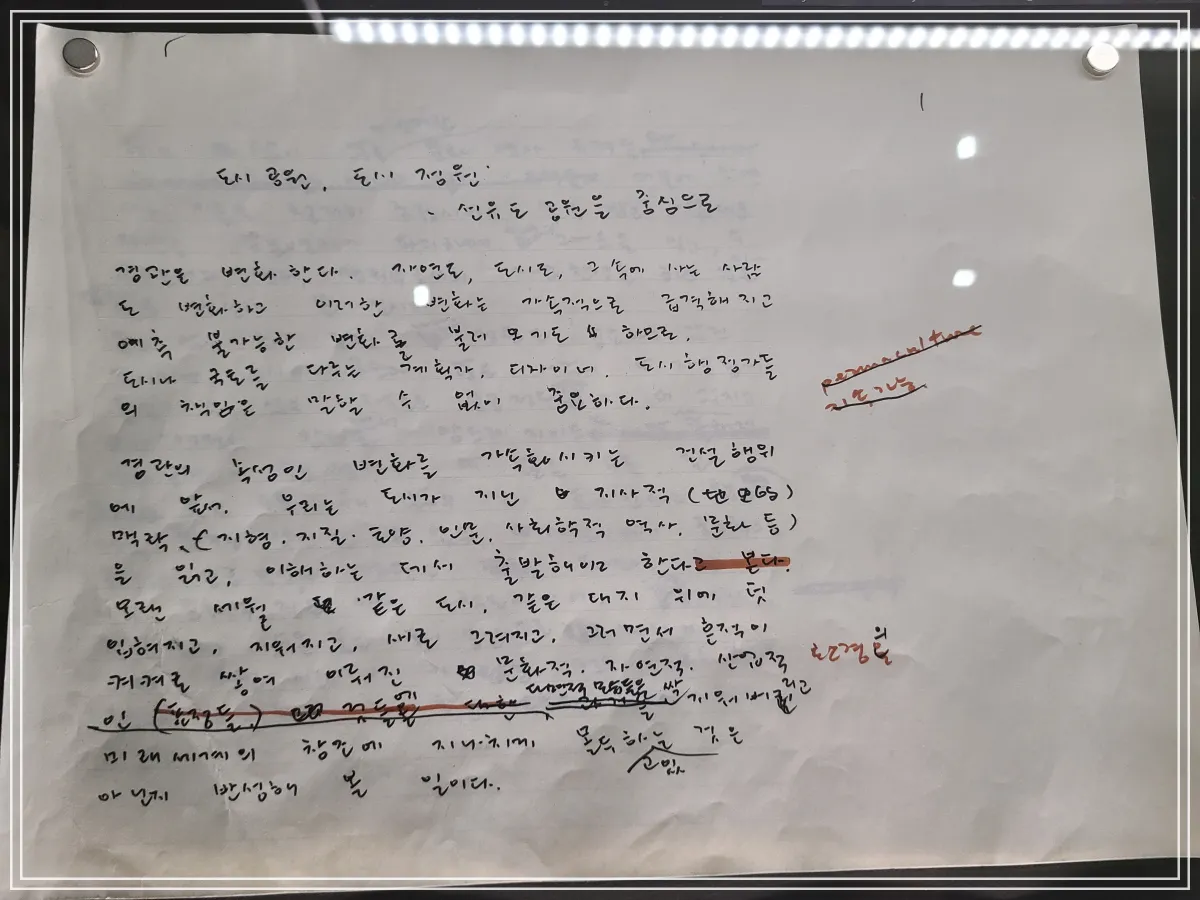 도시 공원, 도시 정원
· 선유도 공원을 중심으로
경관은 변화한다. 자연도, 도시도, 그 속에 사는 사람
도 변화하고 이러한 변화는 가속적으로 급격해지고
예측 불가능한 변화를 불러 오기도 하므로,
도시나 국토를 다루는 계획가, 디자이너, 도시행정가들
의 책임은 말할 수 없이 중요하다.
permaculture
지속가능
경관의 속성인 변화를 가속화시키는 건설행위
에 앞서, 우리는 도시가 지닌 지사적
맥락, (지형, 지질, 토양, 인문, 사회학적 역사, 문화 등)
을 읽고, 이해하는 데서 출발해야 한다고 본다.
오랜 세월 같은 도시, 같은 대지 위에 덧
입혀지고, 지워지고, 새로 그려지고, 그러면서 흔적이
켜켜로 쌓여 이뤄진 문화적, 자연적, 산업적
인 것들에 대한 싹 지워버리고
미래세계의 창조에 지나치게 몰두하는 것은
고
아닌지 반성해 볼 일이다.